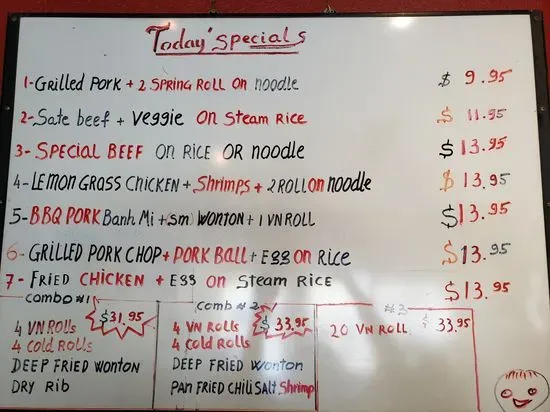 Today's Specials
1-Grilled Pork + 2 SPRING ROLL ON noodle $ 9.95
2-Sate beef + Veggie ON Steam Rice $ 11.95
3-SPECIAL BEEF ON RICE OR noodle $ 13.95
4-LEMON GRASS CHICKEN + Shrimps + 2 ROLL ON noodle $ 13.95
5-BBQ PORK Banh Mi + (sm) WONTON + 1 VN ROLL $13.95
6-GRILLED PORK CHOP + PORK BALL + Egg ON Rice $13.95
7-FRIED CHICKEN + Egg ON Steam RICE $13.95
Combo #1 $31.95
4 VN ROLLS
4 COLD ROLLS
DEEP FRIED WONTON
DRY RIB
Comb #2 $ 33.95
4 VN ROLLS
4 COLD ROLLS
DEEP FRIED WONTON
PAN FRIED CHILI SALT Shrimp
#3
20 VN ROLL $ 33.95